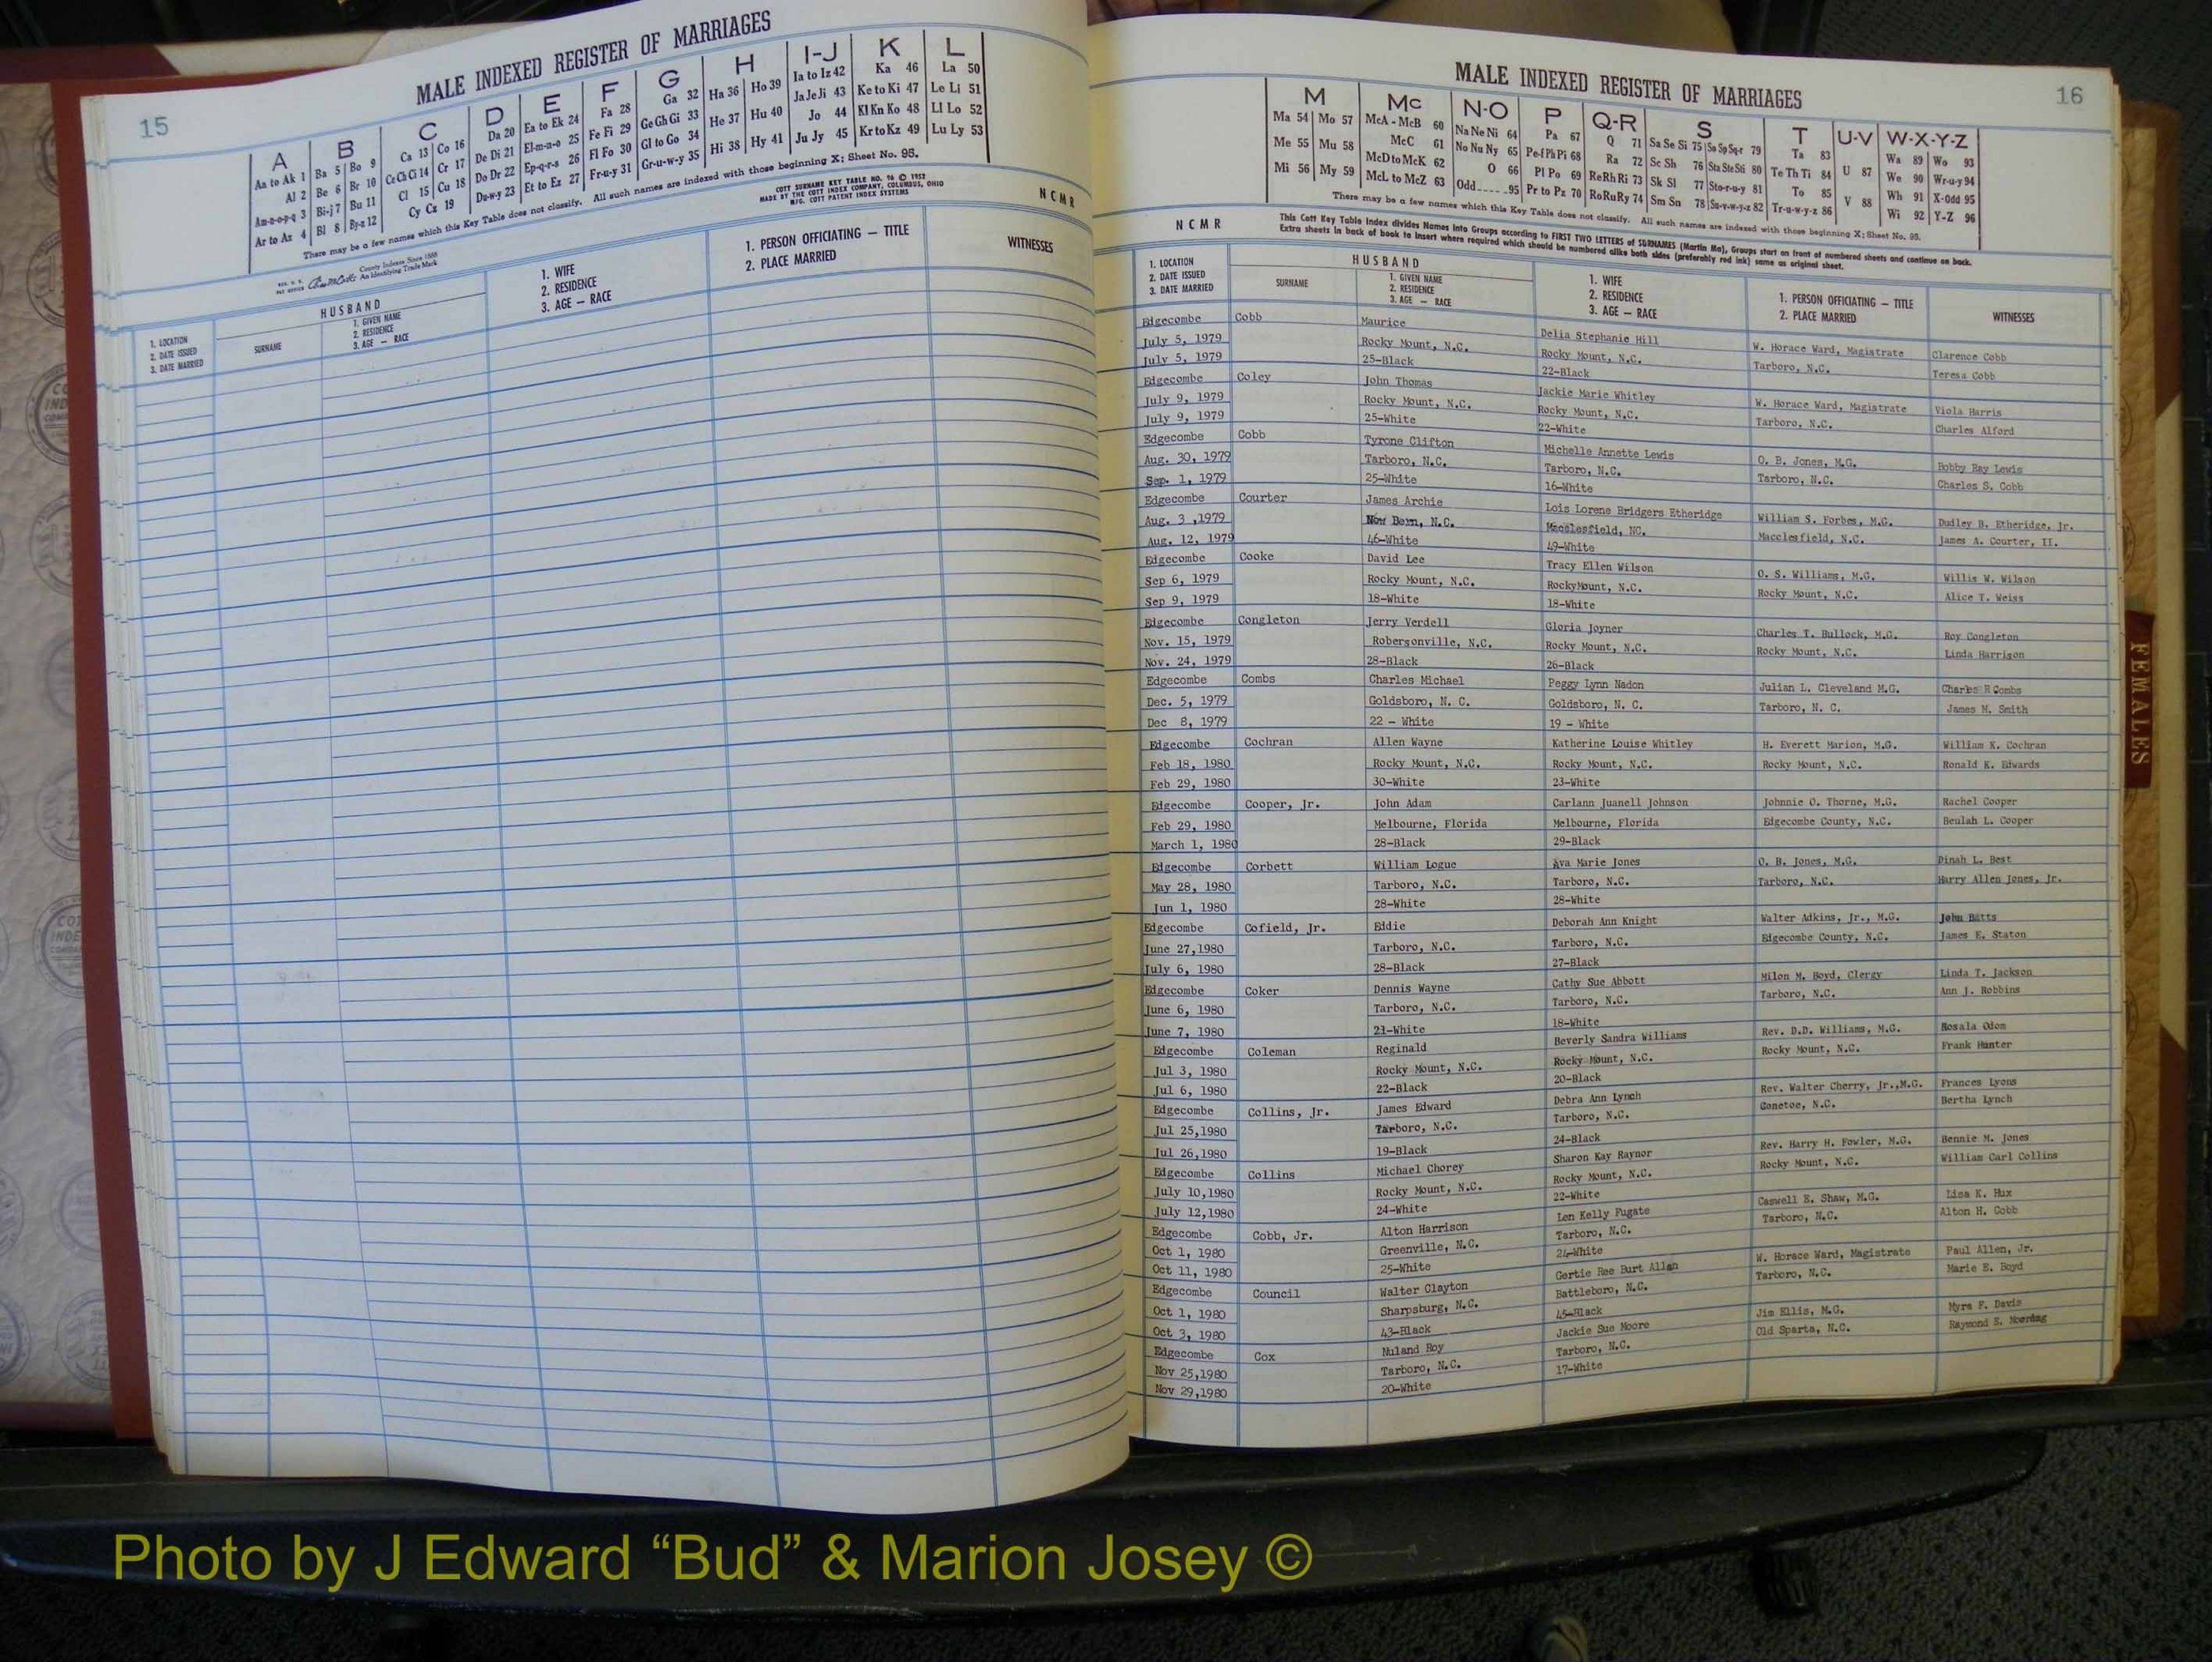 15
MALE INDEXED REGISTER OF MARRIAGES
A B C D E F G H I-J K L
Aa to Ak 1 Ba 5 Bo 9 Ca 13 Co 16 Da 20 Ea to Ek 24 Fa 28 Ga 32 Ha 36 Ho 39 Ia to Iz 42 Ka 46 La 50
Al 2 Be 6 Br 10 Ce Ch Ci 14 Cr 17 De Di 21 El-m-n-o 25 Fe Fi 29 Ge Gh Gi 33 He 37 Hu 40 Ja Je Ji 43 Ke to Ki 47 Le Li 51
Am-n-o-p-q 3 Bi-j 7 Bu 11 Cl 15 Cu 18 Do Dr 22 Ep-q-r-s 26 Fl Fo 30 Gl to Go 34 Hi 38 Hy 41 Jo 44 Kl Kn Ko 48 Ll Lo 52
Ar to Az 4 Bl 8 By-z 12 Cy Cz 19 Du-w-y 23 Et to Ez 27 Fr-u-y 31 Gr-u-w-y 35 Ju Jy 45 Kr to Kz 49 Lu Ly 53
There may be a few names which this Key Table does not classify. All such names are indexed with those beginning X; Sheet No. 95.
County Indexes Since 1888
An Identifying Trade Mark
COTT SURNAME KEY TABLE NO. 96 © 1952
MADE BY THE COTT INDEX COMPANY, COLUMBUS, OHIO
MFG. COTT PATENT INDEX SYSTEMS
NCMR
1. LOCATION
2. DATE ISSUED
3. DATE MARRIED
HUSBAND
SURNAME
1. GIVEN NAME
2. RESIDENCE
3. AGE — RACE
1. WIFE
2. RESIDENCE
3. AGE — RACE
1. PERSON OFFICIATING — TITLE
2. PLACE MARRIED
WITNESSES
MALE INDEXED REGISTER OF MARRIAGES
16
M Mc N-O P Q-R S T U-V W-X-Y-Z
Ma 54 Mo 57 McA - McB 60 Na Ne Ni 64 Pa 67 Q 71 Sa Se Si 75 So Sp Sq-r 79 Ta 83 U 87 Wa 89 Wo 93
Me 55 Mu 58 McC 61 No Nu Ny 65 Pe-f Ph Pi 68 Ra 72 Sc Sh 76 Sta Ste Sti 80 Te Th Ti 84 V 88 We 90 Wr-u-y 94
Mi 56 My 59 McD to McK 62 O 66 Pl Po 69 Re Rh Ri 73 Sk Sl 77 Sto-r-u-y 81 To 85 Wh 91 X-Odd 95
McL to McZ 63 Odd 95 Pr to Pz 70 Ro Ru Ry 74 Sm Sn 78 Su-v-w-y-z 82 Tr-u-w-y-z 86 Wi 92 Y-Z 96
There may be a few names which this Key Table does not classify. All such names are indexed with those beginning X; Sheet No. 95.
NCMR
This Cott Key Table Index divides Names into Groups according to FIRST TWO LETTERS of SURNAMES (Martin Ma), Groups start on front of numbered sheets and continue on back.
Extra sheets in back of book to insert where required which should be numbered alike both sides (preferably red ink) same as original sheet.
1. LOCATION
2. DATE ISSUED
3. DATE MARRIED
HUSBAND
SURNAME
1. GIVEN NAME
2. RESIDENCE
3. AGE — RACE
1. WIFE
2. RESIDENCE
3. AGE — RACE
1. PERSON OFFICIATING — TITLE
2. PLACE MARRIED
WITNESSES
Edgecombe Cobb Maurice Delia Stephanie Hill W. Horace Ward, Magistrate Clarence Cobb
July 5, 1979 Rocky Mount, N.C. Rocky Mount, N.C. Tarboro, N.C. Teresa Cobb
July 5, 1979 25-Black 22-Black
Edgecombe Coley John Thomas Jackie Marie Whitley W. Horace Ward, Magistrate Viola Harris
July 9, 1979 Rocky Mount, N.C. Rocky Mount, N.C. Tarboro, N.C. Charles Alford
July 9, 1979 25-White 22-White
Edgecombe Cobb Tyrone Clifton Michelle Annette Lewis O. B. Jones, M.G. Bobby Ray Lewis
Aug. 30, 1979 Tarboro, N.C. Tarboro, N.C. Tarboro, N.C. Charles S. Cobb
Sep. 1, 1979 25-White 16-White
Edgecombe Courter James Archie Lois Lorene Bridgers Etheridge William S. Forbes, M.G. Dudley B. Etheridge, Jr.
Aug. 3 ,1979 New Bern, N.C. Macclesfield, NC. Macclesfield, N.C. James A. Courter, II.
Aug. 12, 1979 46-White 49-White
Edgecombe Cooke David Lee Tracy Ellen Wilson O. S. Williams, M.G. Willis W. Wilson
Sep 6, 1979 Rocky Mount, N.C. RockyMount, N.C. Rocky Mount, N.C. Alice T. Weiss
Sep 9, 1979 18-White 18-White
Edgecombe Congleton Jerry Verdell Gloria Joyner Charles T. Bullock, M.G. Roy Congleton
Nov. 15, 1979 Robersonville, N.C. Rocky Mount, N.C. Rocky Mount, N.C. Linda Harrison
Nov. 24, 1979 28-Black 26-Black
Edgecombe Combs Charles Michael Peggy Lynn Nadon Julian L. Cleveland M.G. Charles R Combs
Dec. 5, 1979 Goldsboro, N. C. Goldsboro, N. C. Tarboro, N. C. James M. Smith
Dec 8, 1979 22 - White 19 - White
Edgecombe Cochran Allen Wayne Katherine Louise Whitley H. Everett Marion, M.G. William K. Cochran
Feb 18, 1980 Rocky Mount, N.C. Rocky Mount, N.C. Rocky Mount, N.C. Ronald K. Edwards
Feb 29, 1980 30-White 23-White
Edgecombe Cooper, Jr. John Adam Carlann Juanell Johnson Johnnie O. Thorne, M.G. Rachel Cooper
Feb 29, 1980 Melbourne, Florida Melbourne, Florida Edgecombe County, N.C. Beulah L. Cooper
March 1, 1980 28-Black 29-Black
Edgecombe Corbett William Logue Ava Marie Jones O. B. Jones, M.G. Dinah L. Best
May 28, 1980 Tarboro, N.C. Tarboro, N.C. Tarboro, N.C. Harry Allen Jones, Jr.
Jun 1, 1980 28-White 28-White
Edgecombe Cofield, Jr. Eddie Deborah Ann Knight Walter Adkins, Jr., M.G. John Batts
June 27,1980 Tarboro, N.C. Tarboro, N.C. Edgecombe County, N.C. James E. Staton
July 6, 1980 28-Black 27-Black
Edgecombe Coker Dennis Wayne Cathy Sue Abbott Milon M. Boyd, Clergy Linda T. Jackson
June 6, 1980 Tarboro, N.C. Tarboro, N.C. Tarboro, N.C. Ann J. Robbins
June 7, 1980 21-White 18-White
Edgecombe Coleman Reginald Beverly Sandra Williams Rev. D.D. Williams, M.G. Rosala Odom
Jul 3, 1980 Rocky Mount, N.C. Rocky Mount, N.C. Rocky Mount, N.C. Frank Hunter
Jul 6, 1980 22-Black 20-Black
Edgecombe Collins, Jr. James Edward Debra Ann Lynch Rev. Walter Cherry, Jr.,M.G. Frances Lyons
Jul 25,1980 Tarboro, N.C. Tarboro, N.C. Conetoe, N.C. Bertha Lynch
Jul 26,1980 19-Black 24-Black
Edgecombe Collins Michael Chorey Sharon Kay Raynor Rev. Harry H. Fowler, M.G. Bennie M. Jones
July 10,1980 Rocky Mount, N.C. Rocky Mount, N.C. Rocky Mount, N.C. William Carl Collins
July 12,1980 24-White 22-White
Edgecombe Cobb, Jr. Alton Harrison Len Kelly Fugate Caswell E. Shaw, M.G. Lisa K. Hux
Oct 1, 1980 Greenville, N.C. Tarboro, N.C. Tarboro, N.C. Alton H. Cobb
Oct 11, 1980 25-White 24-White
Edgecombe Council Walter Clayton Gertie Ree Burt Allen W. Horace Ward, Magistrate Paul Allen, Jr.
Oct 1, 1980 Sharpsburg, N.C. Battleboro, N.C. Tarboro, N.C. Marie E. Boyd
Oct 3, 1980 43-Black 45-Black
Edgecombe Cox Nuland Roy Jackie Sue Moore Jim Ellis, M.G. Myra F. Davis
Nov 25,1980 Tarboro, N.C. Tarboro, N.C. Old Sparta, N.C. Raymond E.
Nov 29,1980 20-White 17-White
FEMALES
Photo by J Edward “Bud” & Marion Josey ©